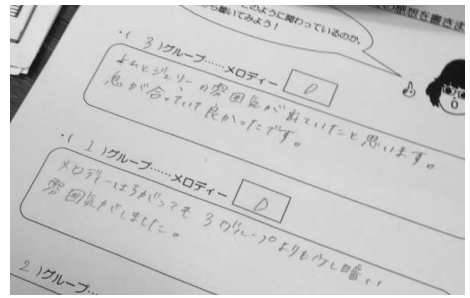 このように関わっているのか、
の感想を書きま
ら聴いてみよう！
・( 3 )グループ……メロディー D
トムとジェリーの雰囲気が出ていたと思います。
息が合っていて良かったです。
・( 1 )グループ……メロディー D
メロディーはちがっても3グループよりも少し暗い
雰囲気がしました。
2 )グループ……